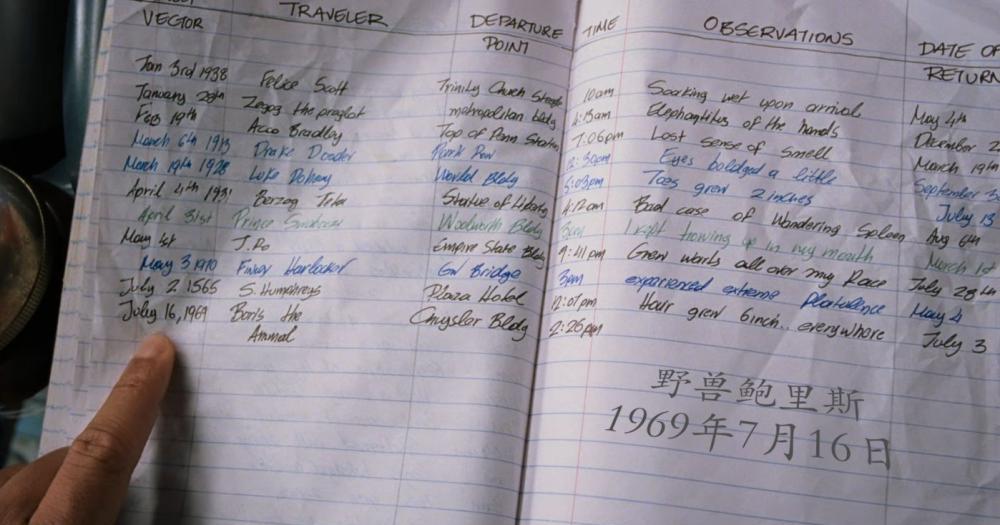 VECTOR TRAVELER DEPARTURE POINT TIME OBSERVATIONS DATE OF RETURN
Jan 3rd 1938 Felice Scott Trinity Church 10am Soaking wet upon arrival May 4th
January 28th Zagog the 4:15am Elephantites of the hands December 2
Feb 19th Acco Bradley Top of Penn Station 7:06pm Lost sense of smell March 19th
March 6th 1913 Drake Dooder Park Row 12:30pm Eyes buldged a little September 3
March 19th 1928 Luke World Bldg 5:03pm Toes grew 2 inches July 13
April 4th 1931 Statue of Liberty 4:12am Bad case of Wandering Spleen Aug 6th
April 31st Prince Woolworth Bldg I kept in my mouth March 1st
May 1st J. Po Empire State Bldg 9:41pm Grew warts all over my Face July 28th
May 3 1970 GW Bridge 3pm experienced extreme May 4
July 2 1565 S. Humphreys Plaza Hotel 12:07pm Hair grew 6 inch.. everywhere July 3
July 16, 1969 Boris the Animal Chrysler Bldg 2:26pm
野兽鲍里斯
1969年7月16日